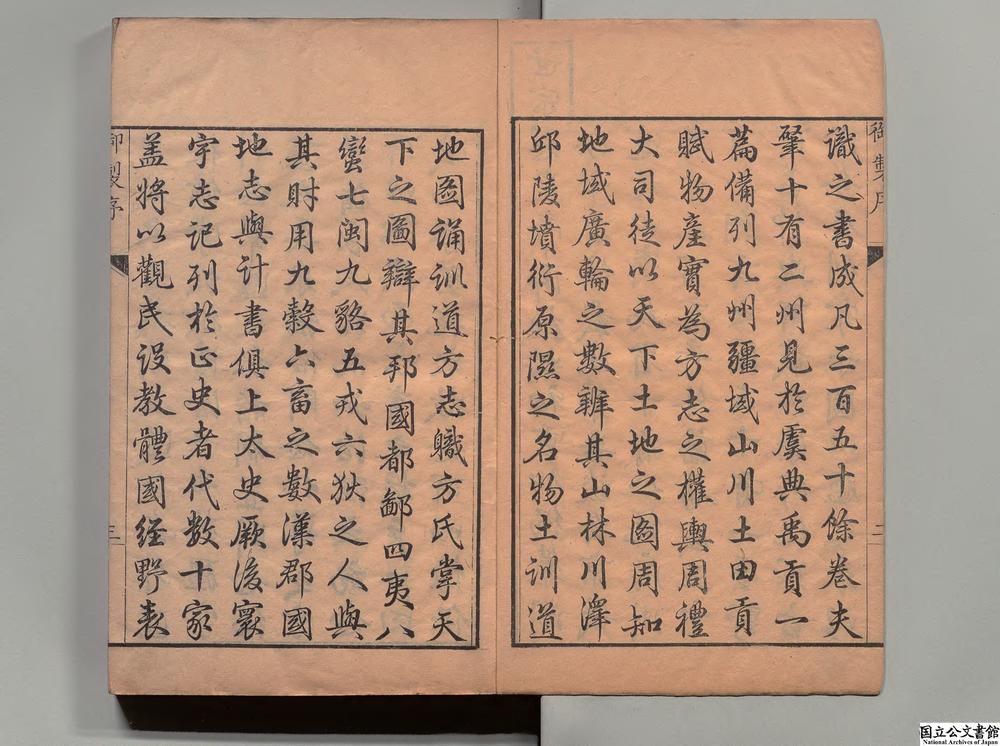 識之書成凡三百五十餘卷夫
肇十有二州見於虞典禹貢一
篇備列九州疆域山川土田貢
賦物産實為方志之權輿周禮
大司徒以天下土地之圖周知
地域廣輪之數辨其山林川澤
邱陵墳衍原隰之名物土訓道
地圖誦訓道方志職方氏掌天
下之圖辯其邦國都鄙四夷八
蠻七閩九貉五戎六狄之人與
其財用九穀六畜之數漢郡國
地志與計書俱上太史厥後寰
宇志記列於正史者代數十家
盖將以觀民設教體國經野表
御製序
三
国立公文書館
National Archives of Japan